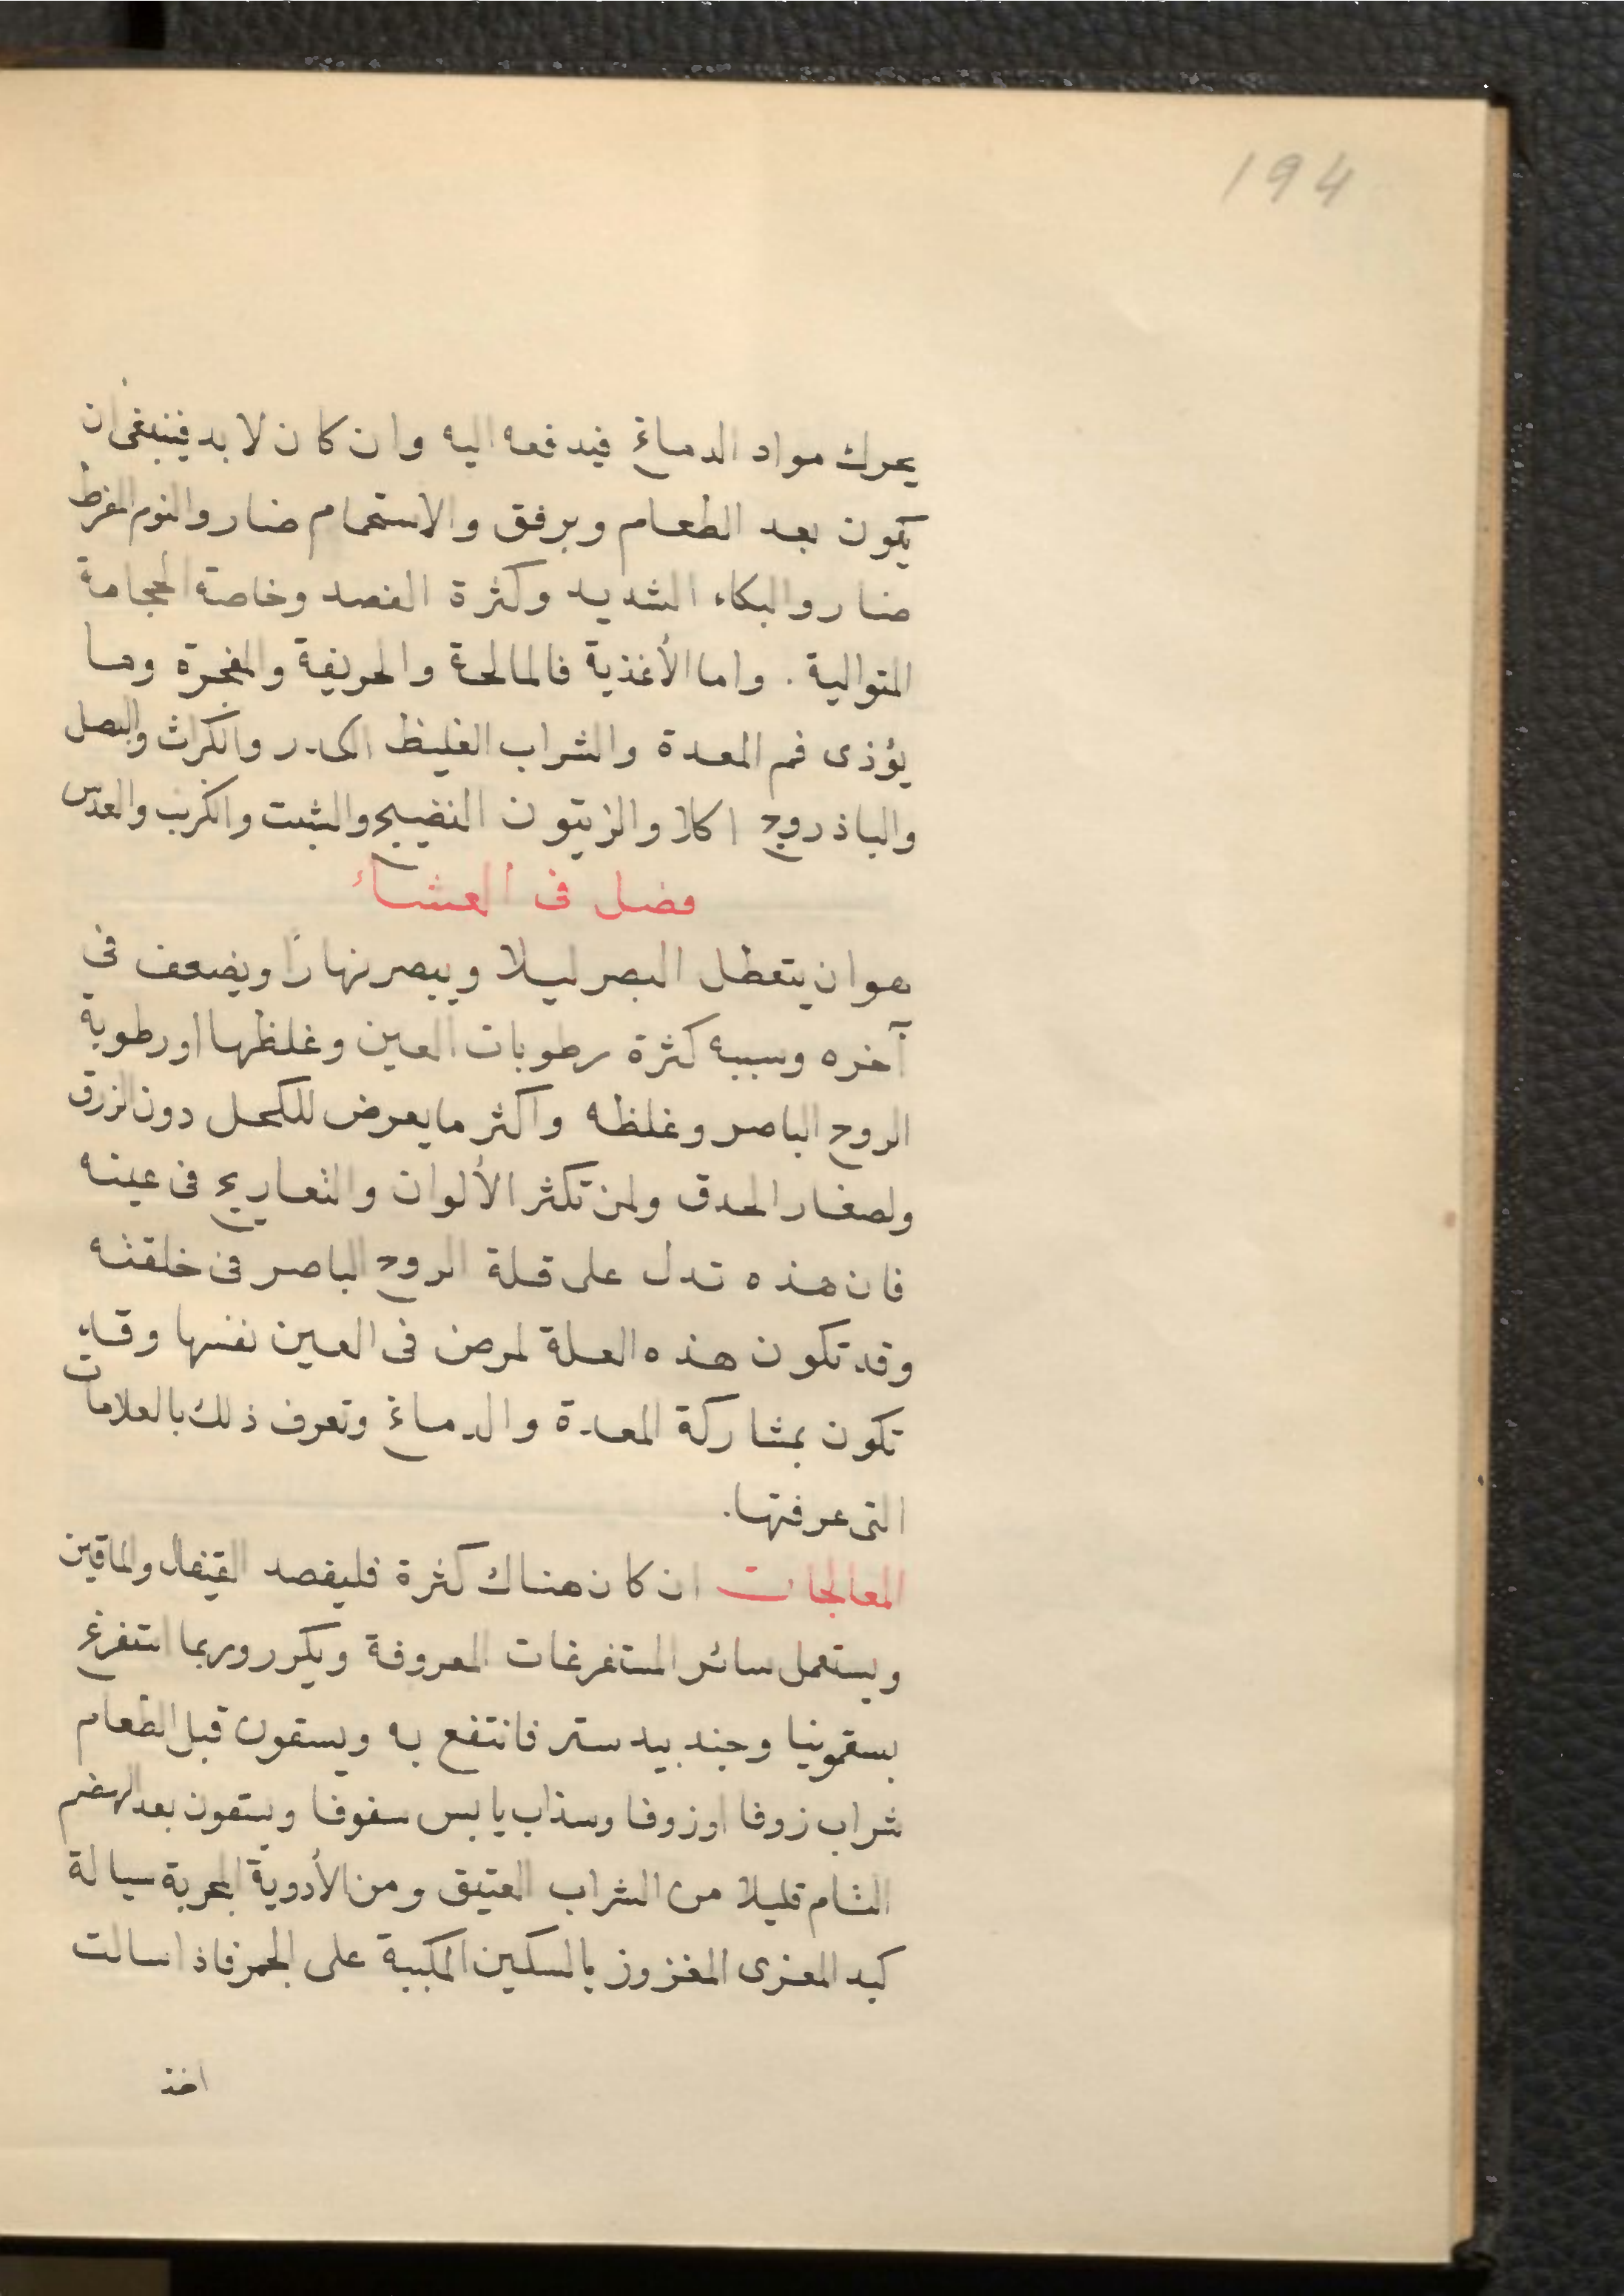 194
يحرك مواد الدماغ فيدفعه اليه وان كان لا بد فينبغى ان
يكون بعد الطعام وبرفق والاستحمام ضار والنوم المفرط
ضار والبكاء الشديد وكثرة الفصد وخاصة الحجامة
المتوالية . واما الأغذية فالمالحة والحريفة والمبخرة وما
يؤذى فم المعدة والشراب الغليظ الكدر والكراث والبصل
والباذروج اكلا والزيتون النضيج والشبت والكرنب والعدس
فصل فى العشاء
هو ان يتعطل البصر ليلا ويبصر نهارًا ويضعف فى
آخره وسببه كثرة رطوبات العين وغلظها او رطوبة
الروح الباصر وغلظه واكثر ما يعرض للكحل دون الزرق
ولصغار الحدق ولمن تكثر الألوان والتعاريج فى عينه
فان هذه تدل على قلة الروح الباصر فى خلقته
وقد تكون هذه العلة لمرض فى العين نفسها وقد
تكون بمشاركة المعدة والدماغ وتعرف ذلك بالعلامات
التى عرفتها.
المعالجات ان كان هناك كثرة فليفصد القيفال والماقين
ويستعمل سائر المستفرغات المعروفة ويكرر وربما استفرغ
بسقمونيا وجندبيدستر فانتفع به ويسقون قبل الطعام
شراب زوفا او زوفا وسذاب يابس سفوفا ويسقون بعد الهضم
التام قليلا من الشراب العتيق ومن الأدوية المجربة سيالة
كبد المعزى المغزوز بالسكين المكببة على الجمر فاذا سالت
اخذ